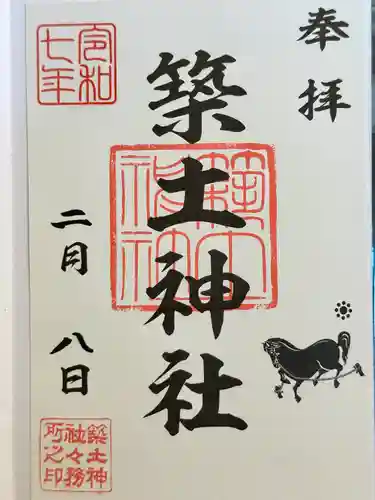 奉拝
築土神社
築土神社
令和七年
二月八日
築土神社々務所之印